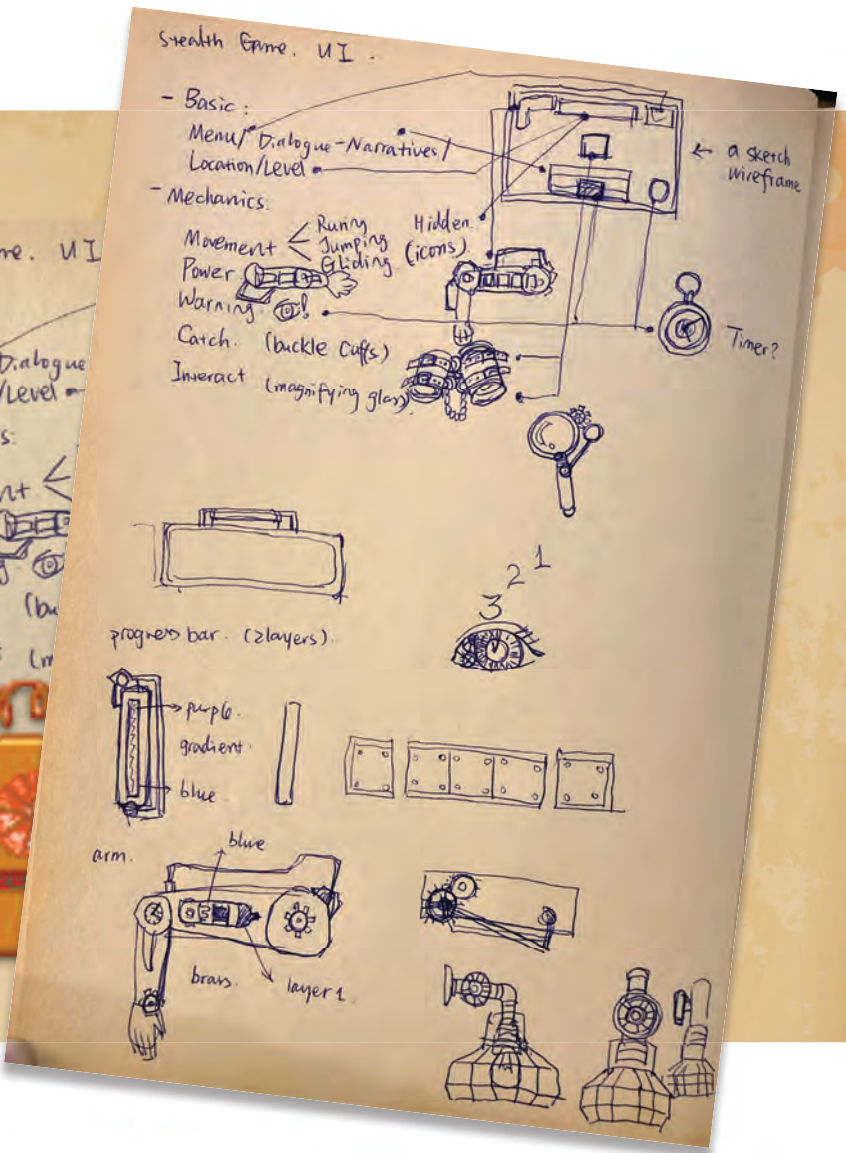 Stealth Game. UI.
- Basic:
Menu/ Dialogue-Narratives/
Location/Level
← a sketch
wireframe
- Mechanics:
Movement < Runing Jumping Gliding Hidden (icons)
Power
Warning !
Timer?
Catch. (buckle Cuffs)
Interact (magnifying glass).
3 2 1
progress bar. (2layers).
purple.
gradient.
blue.
arm.
blue
brass.
layer 1
me. UI
Dialogue
/Level
s:
nt <